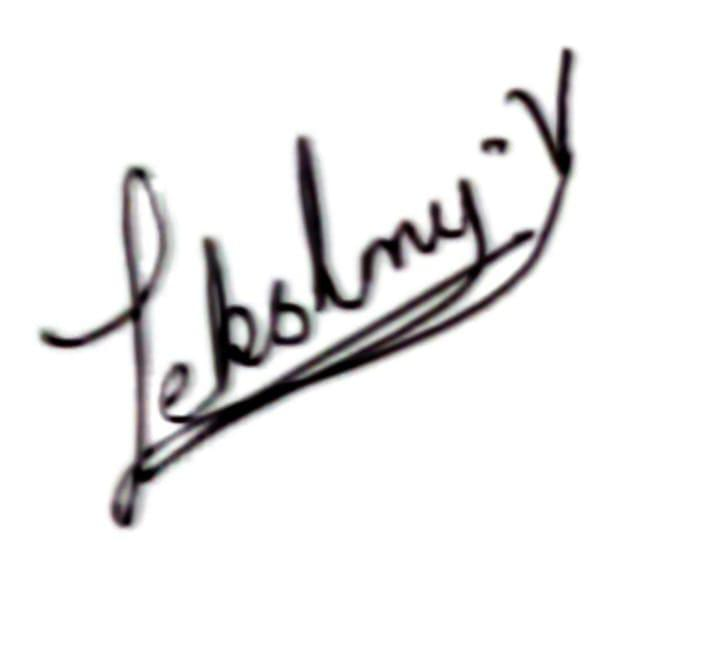 Lekshmy. V